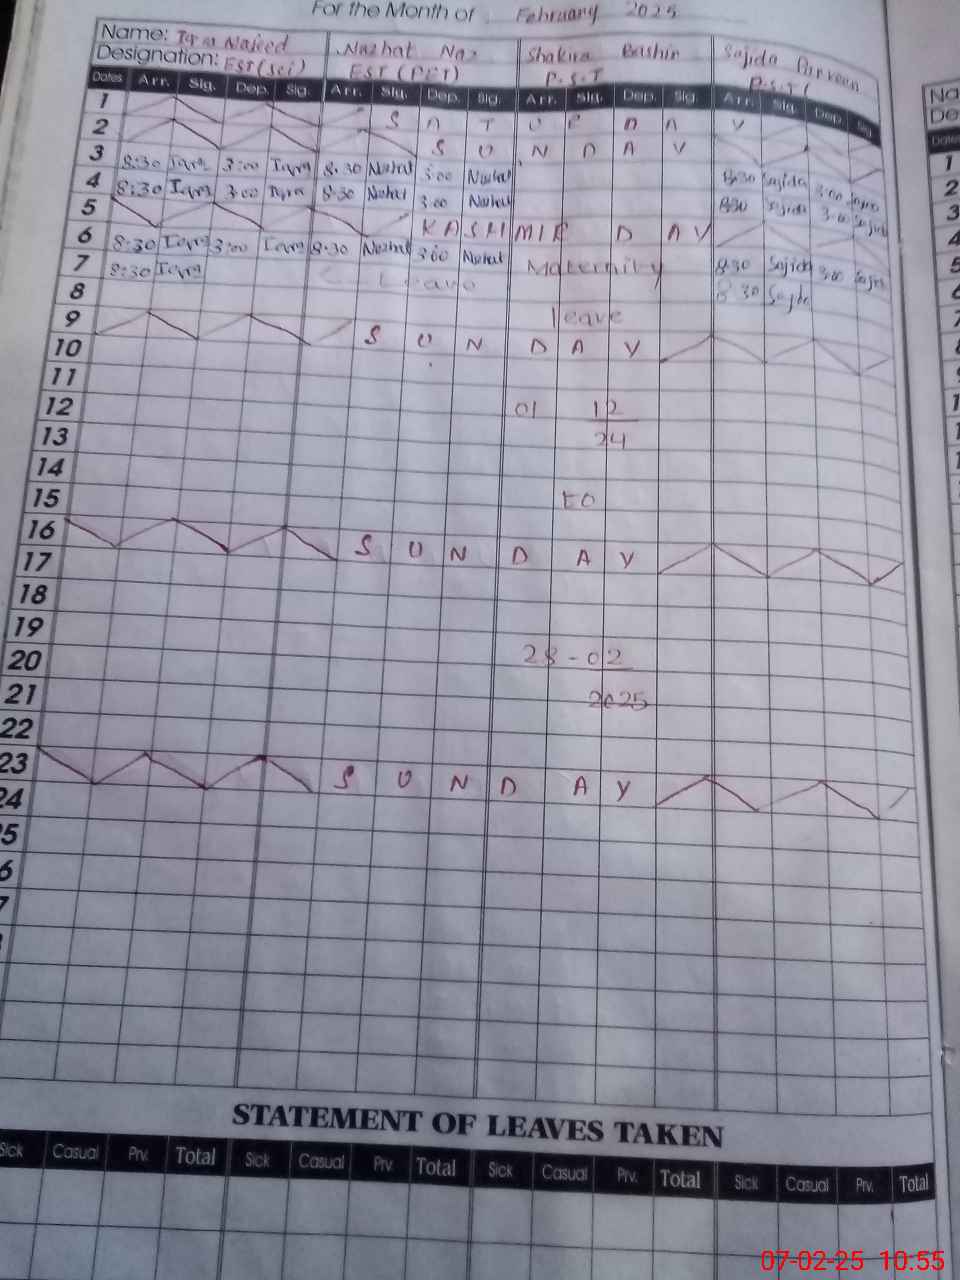 For the Month of February 2025
Name: Iqra Naveed Nazhat Naz Shakira Bashir Sajida Parveen
Designation: EST (Sci) EST (PET) P.S.T P.S.T
Dates Arr. Sig. Dep. Sig. Arr. Sig. Dep. Sig. Arr. Sig. Dep. Sig. Arr. Sig. Dep. Sig.
1 S A T U R D A Y
2 S U N D A Y
3 8:30 Iqra 3:00 Iqra 8:30 Nazhat 3:00 Nazhat 8:30 Sajida 3:00 Sajida
4 8:30 Iqra 3:00 Iqra 8:30 Nazhat 3:00 Nazhat 8:30 Sajida 3:00 Sajida
5 KASHMIR DAY
6 8:30 Iqra 3:00 Iqra 8:30 Nazhat 3:00 Nazhat Maternity 8:30 Sajida 3:00 Sajida
7 8:30 Iqra Leave 8:30 Sajida
8 leave
9 S U N D A Y
10
11
12 01 12
13 24
14
15 to
16 S U N D A Y
17
18
19
20 28-02
21 2025
22
23 S U N D A Y
24
5
6
7
STATEMENT OF LEAVES TAKEN
Sick Casual Prv. Total Sick Casual Prv. Total Sick Casual Prv. Total Sick Casual Prv. Total
Na
De
Dates
1
2
3
4
5
6
7
07-02-25 10:55